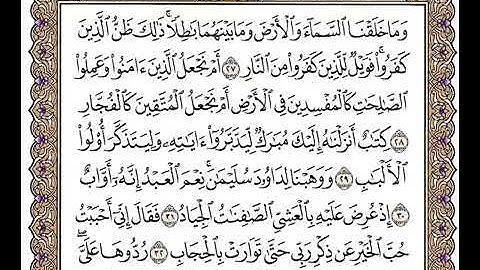 وَمَا خَلَقْنَا ٱلسَّمَآءَ وَٱلْأَرْضَ وَمَا بَيْنَهُمَا بَٰطِلًا ۚ ذَٰلِكَ ظَنُّ ٱلَّذِينَ
كَفَرُوا۟ ۚ فَوَيْلٌ لِّلَّذِينَ كَفَرُوا۟ مِنَ ٱلنَّارِ ٢٧ أَمْ نَجْعَلُ ٱلَّذِينَ ءَامَنُوا۟ وَعَمِلُوا۟
ٱلصَّٰلِحَٰتِ كَٱلْمُفْسِدِينَ فِى ٱلْأَرْضِ أَمْ نَجْعَلُ ٱلْمُتَّقِينَ كَٱلْفُجَّارِ
٢٨ كِتَٰبٌ أَنزَلْنَٰهُ إِلَيْكَ مُبَٰرَكٌ لِّيَدَّبَّرُوٓا۟ ءَايَٰتِهِۦ وَلِيَتَذَكَّرَ أُو۟لُوا۟
ٱلْأَلْبَٰبِ ٢٩ وَوَهَبْنَا لِدَاوُۥدَ سُلَيْمَٰنَ ۚ نِعْمَ ٱلْعَبْدُ ۖ إِنَّهُۥٓ أَوَّابٌ
٣٠ إِذْ عُرِضَ عَلَيْهِ بِٱلْعَشِىِّ ٱلصَّٰفِنَٰتُ ٱلْجِيَادُ ٣١ فَقَالَ إِنِّىٓ أَحْبَبْتُ
حُبَّ ٱلْخَيْرِ عَن ذِكْرِ رَبِّى حَتَّىٰ تَوَارَتْ بِٱلْحِجَابِ ٣٢ رُدُّوهَا عَلَىَّ ۖ